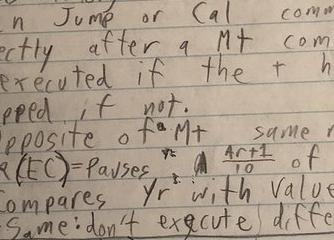 n Jump or Cal comm
ectly after a M+ com
executed if the + h
pped if not.
pposite of M+ same r
(EC)=Pauses 4r+1/10 of
Compares Yr with Value
same: don't execute diffe